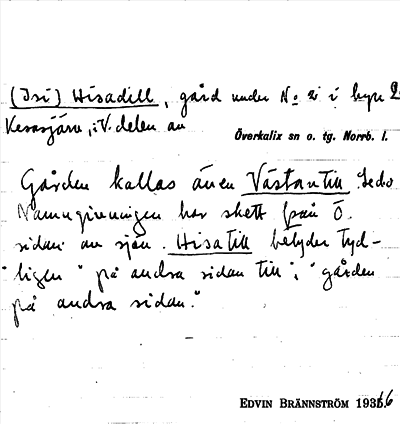 (Isi) Hisadill, gård under No 2 i byn
Kesasjärv, i V. delen av
Överkalix sn o. tg. Norrb. l.
Gården kallas även Västantill
Namngivningen har skett från Ö.
sidan av sjön. Hisatill betyder tyd-
ligen "på andra sidan till", "gården
på andra sidan."
EDVIN BRÄNNSTRÖM 1936